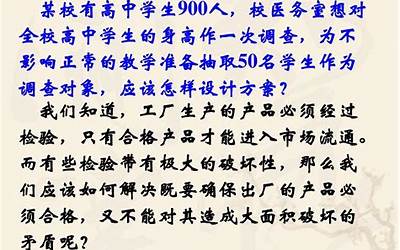 某校有高中学生900人，校医务室想对
全校高中学生的身高作一次调查，为不
影响正常的教学准备抽取50名学生作为
调查对象，应该怎样设计方案？
我们知道，工厂生产的产品必须经过
检验，只有合格产品才能进入市场流通。
而有些检验带有极大的破坏性，那么我
们应该如何解决既要确保出厂的产品必
须合格，又不能对其造成大面积破坏的
矛盾呢？